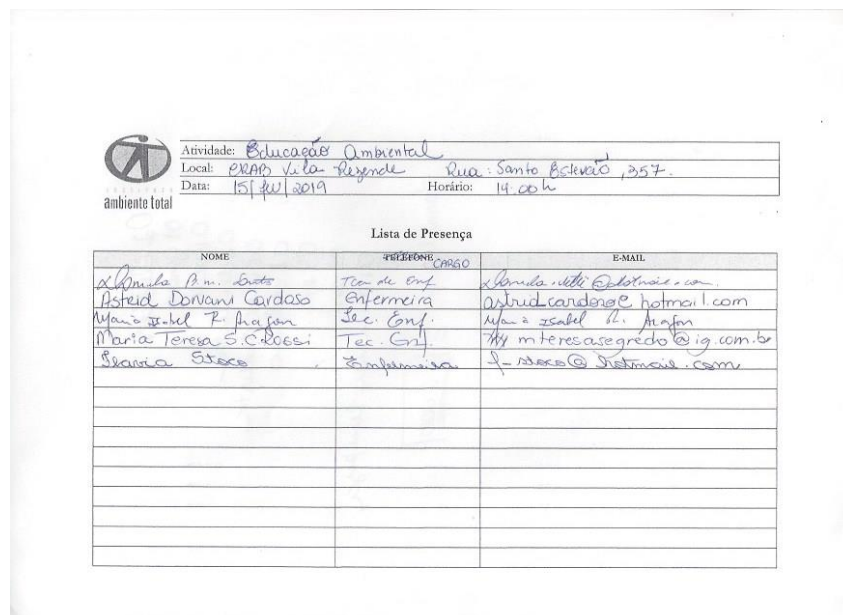 ambiente total
Atividade: Educação Ambiental
Local: CRAB Vila Rezende Rua: Santo Estevão, 357.
Data: 15/ /2019 Horário: 14:00 h
Lista de Presença
NOME TELEFONE CARGO E-MAIL
B.m. Tec de Enf
Astrid Donvani Cardoso Enfermeira astridcardoso@hotmail.com
Maria Isabel R. Aragon Tec. Enf. Maria Isabel R. Aragon
Maria Teresa S.C Rossi Tec. Enf. mteresasegredo@ig.com.br
Flavia Stoco Enfermeira f-stoco@hotmail.com